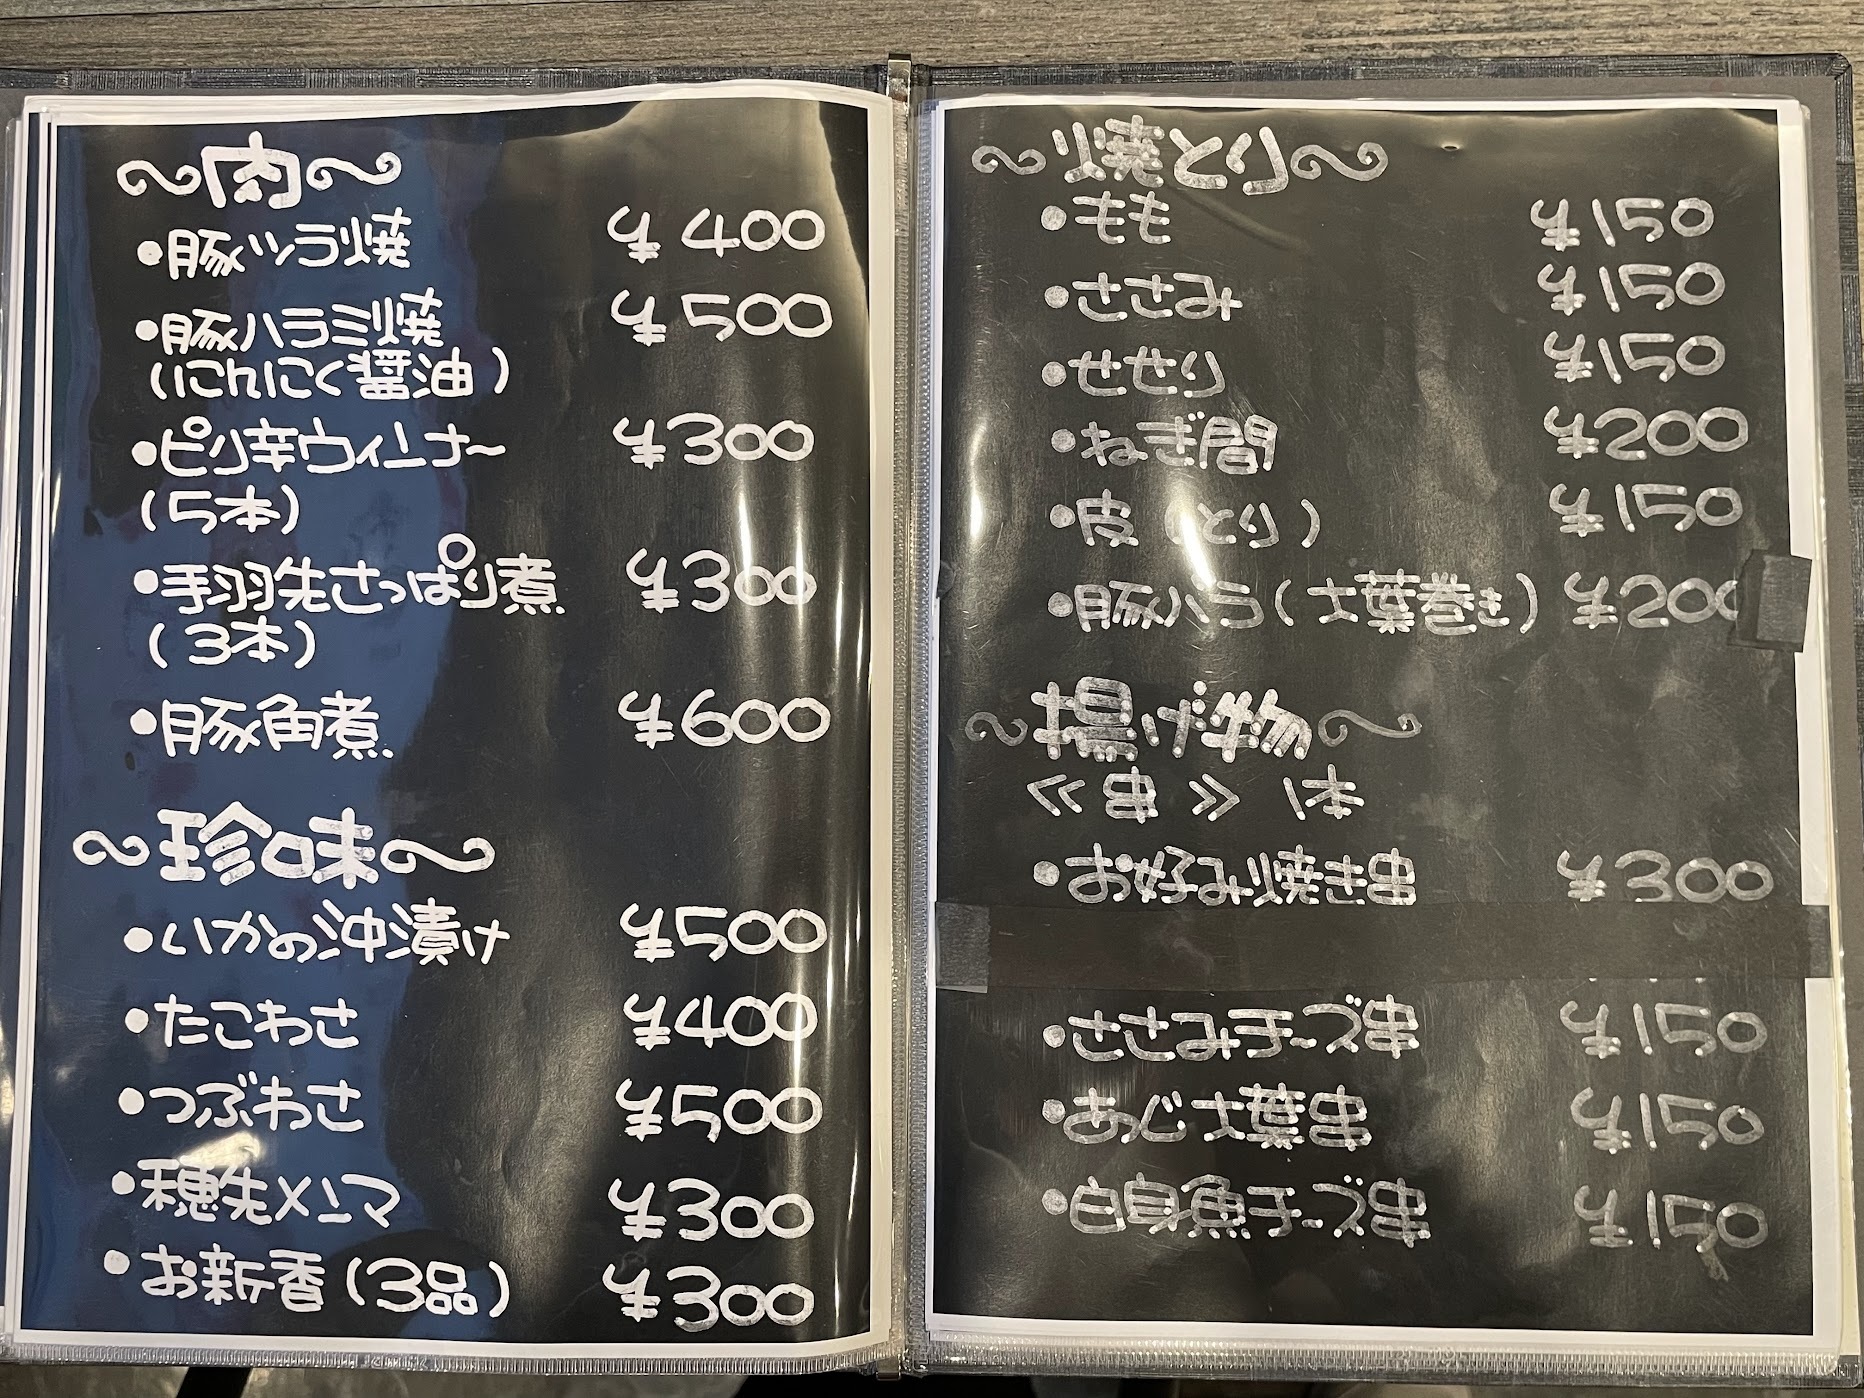 〜肉〜
・豚ツラ焼 ¥400
・豚ハラミ焼 ¥500
(にんにく醤油)
・ピリ辛ウィンナー ¥300
(5本)
・手羽先さっぱり煮 ¥300
(3本)
・豚角煮 ¥600
〜珍味〜
・いかの沖漬け ¥500
・たこわさ ¥400
・つぶわさ ¥500
・穂先メンマ ¥300
・お新香(3品) ¥300
〜焼とり〜
・もも ¥150
・ささみ ¥150
・せせり ¥150
・ねぎ間 ¥200
・皮(とり) ¥150
・豚バラ(大葉巻き) ¥200
〜揚げ物〜
≪串≫ 1本
・お好み焼き串 ¥300
・ささみチーズ串 ¥150
・あじ大葉串 ¥150
・白身魚チーズ串 ¥150